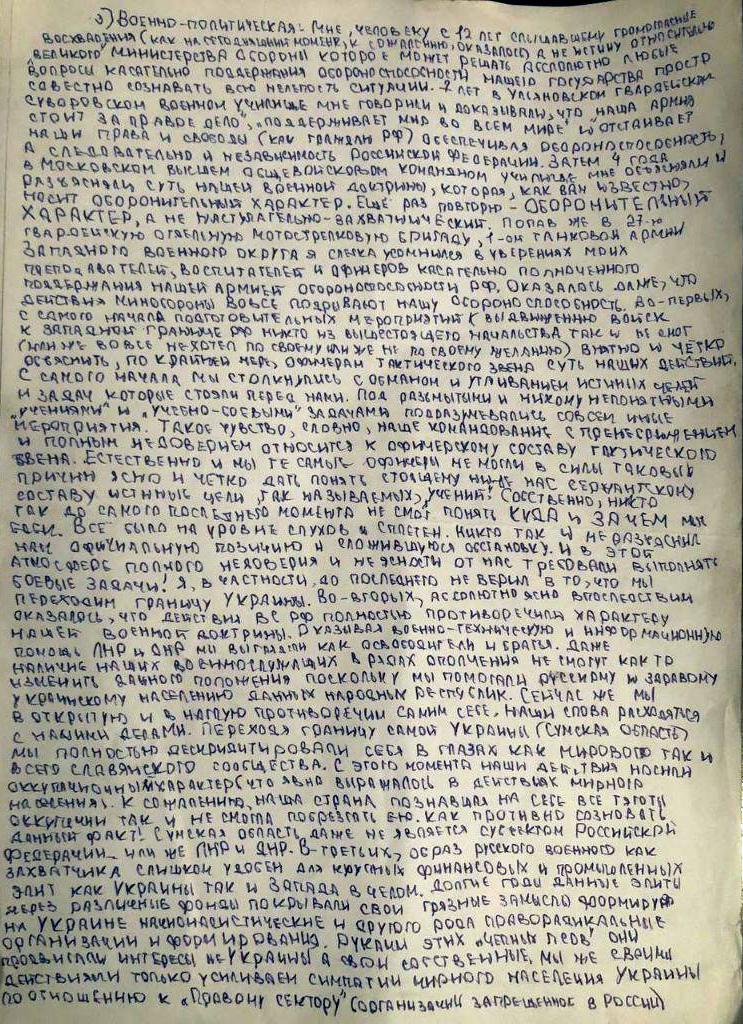 3) Военно-политическая: Мне, человеку с 12 лет слышавшему громогласные
восхваления (как на сегодняшний момент, к сожалению, оказалось) а не истину относительно
"великого" Министерства Обороны которое может решать абсолютно любые
вопросы касательно поддержания обороноспособности нашего государства просто
совестно сознавать всю нелепость ситуации. 7 лет в Ульяновском гвардейском
суворовском военном училище мне говорили и доказывали, что "наша армия
стоит за правое дело", "поддерживает мир во всем мире" и "отстаивает
наши права и свободы (как граждан РФ) обеспечивая обороноспособность,
а следовательно и независимость Российской Федерации. Затем 4 года
в Московском высшем общевойсковом командном училище мне объясняли и
разъясняли суть нашей военной доктрины, которая, как вам известно,
носит оборонительный характер. Еще раз повторю - оборонительный
характер, а не наступательно-захватнический. Попав же в 27-ю
гвардейскую отдельную мотострелковую бригаду, 1-ой танковой армии
Западного военного округа я слегка усомнился в уверениях моих
преподавателей, воспитателей и офицеров касательно полноценного
поддержания нашей армией обороноспособности РФ. Оказалось даже, что
действия Минобороны вовсе подрывают нашу обороноспособность. Во-первых,
с самого начала подготовительных мероприятий к выдвижению войск
к западной границе РФ никто из вышестоящего начальства так и не смог
(или же вовсе не хотел по своему или же не по своему желанию) внятно и четко
объяснить, по крайней мере, офицерам тактического звена суть наших действий.
С самого начала мы столкнулись с обманом и утаиванием истинных целей
и задач которые стояли перед нами. Под размытыми и никому непонятными
"учениями" и "учебно-боевыми" задачами подразумевались совсем иные
мероприятия. Такое чувство, словно, наше командование с пренебрежением
и полным недоверием относится к офицерскому составу тактического
звена. Естественно и мы те самые офицеры не могли в силы таковых
причин ясно и четко дать понять стоящему ниже нас сержантскому
составу истинные цели, так называемых, "учений". Собственно, никто
так до самого последнего момента не смог понять куда и зачем мы
едем. Все было на уровне слухов и сплетен. Никто так и не разъяснил
нам официальную позицию и сложившуюся обстановку. И в этой
атмосфере полного недоверия и неясности от нас требовали выполнять
боевые задачи! Я, в частности, до последнего не верил в то, что мы
переходим границу Украины. Во-вторых, абсолютно ясно впоследствии
оказалось, что действия ВС РФ полностью противоречили характеру
нашей военной доктрины. Оказывая военно-техническую и информационную
помощь ЛНР и ДНР мы выглядели как освободители и братья. Даже
наличие наших военнослужащих в рядах ополчения не смогут как то
изменить данного положения поскольку мы помогали русскому и здравому
украинскому населению данных народных республик. Сейчас же мы
в открытую и в наглую противоречим самим себе. Наши слова расходятся
с нашими делами. Переходя границу самой Украины (Сумская область)
мы полностью дескридитировали себя в глазах как мирового так и
всего славянского сообщества. С этого момента наши действия носили
оккупационный характер (что явно выражалось в действиях мирного
населения). К сожалению, наша страна познавшая на себе все тяготы
оккупации так и не смогла побрезгать ею. Как противно сознавать
данный факт! Сумская область даже не является субъектом Российской
Федерации или же ЛНР и ДНР. В-третьих, образ русского военного как
захватчика слишком удобен для крупных финансовых и промышленных
элит как Украины так и Запада в целом. Долгие годы данные элиты
через различные фонды покрывали свои грязные замыслы формируя
на Украине националистические и другого рода праворадикальные
организации и формирования. Руками этих "цепных псов" они
продвигали интересы не Украины а свои собственные, мы же своими
действиями только усиливаем симпатии мирного населения Украины
по отношению к "Правому сектору" (организации запрещенное в России)